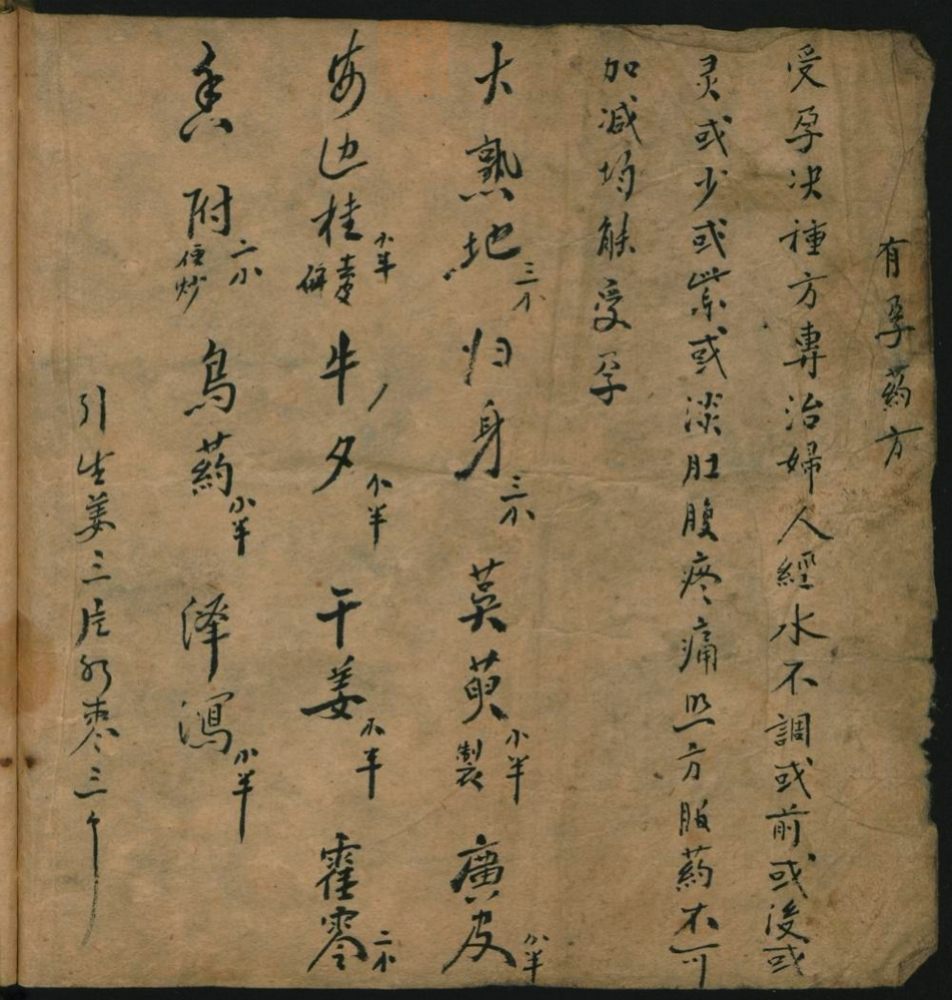 有孕药方
受孕决種方專治婦人經水不調或前或後或
灵或少或紫或淡肚腹疼痛照方服药不可
加减均能受孕
大熟地三小 归身三小 萸萸製小半 廣皆小半
安边桂小半 牛夕小半 干姜小半 霍零二小
香附炒二小 烏药小半 泽瀉小半
引生姜三片红枣三个